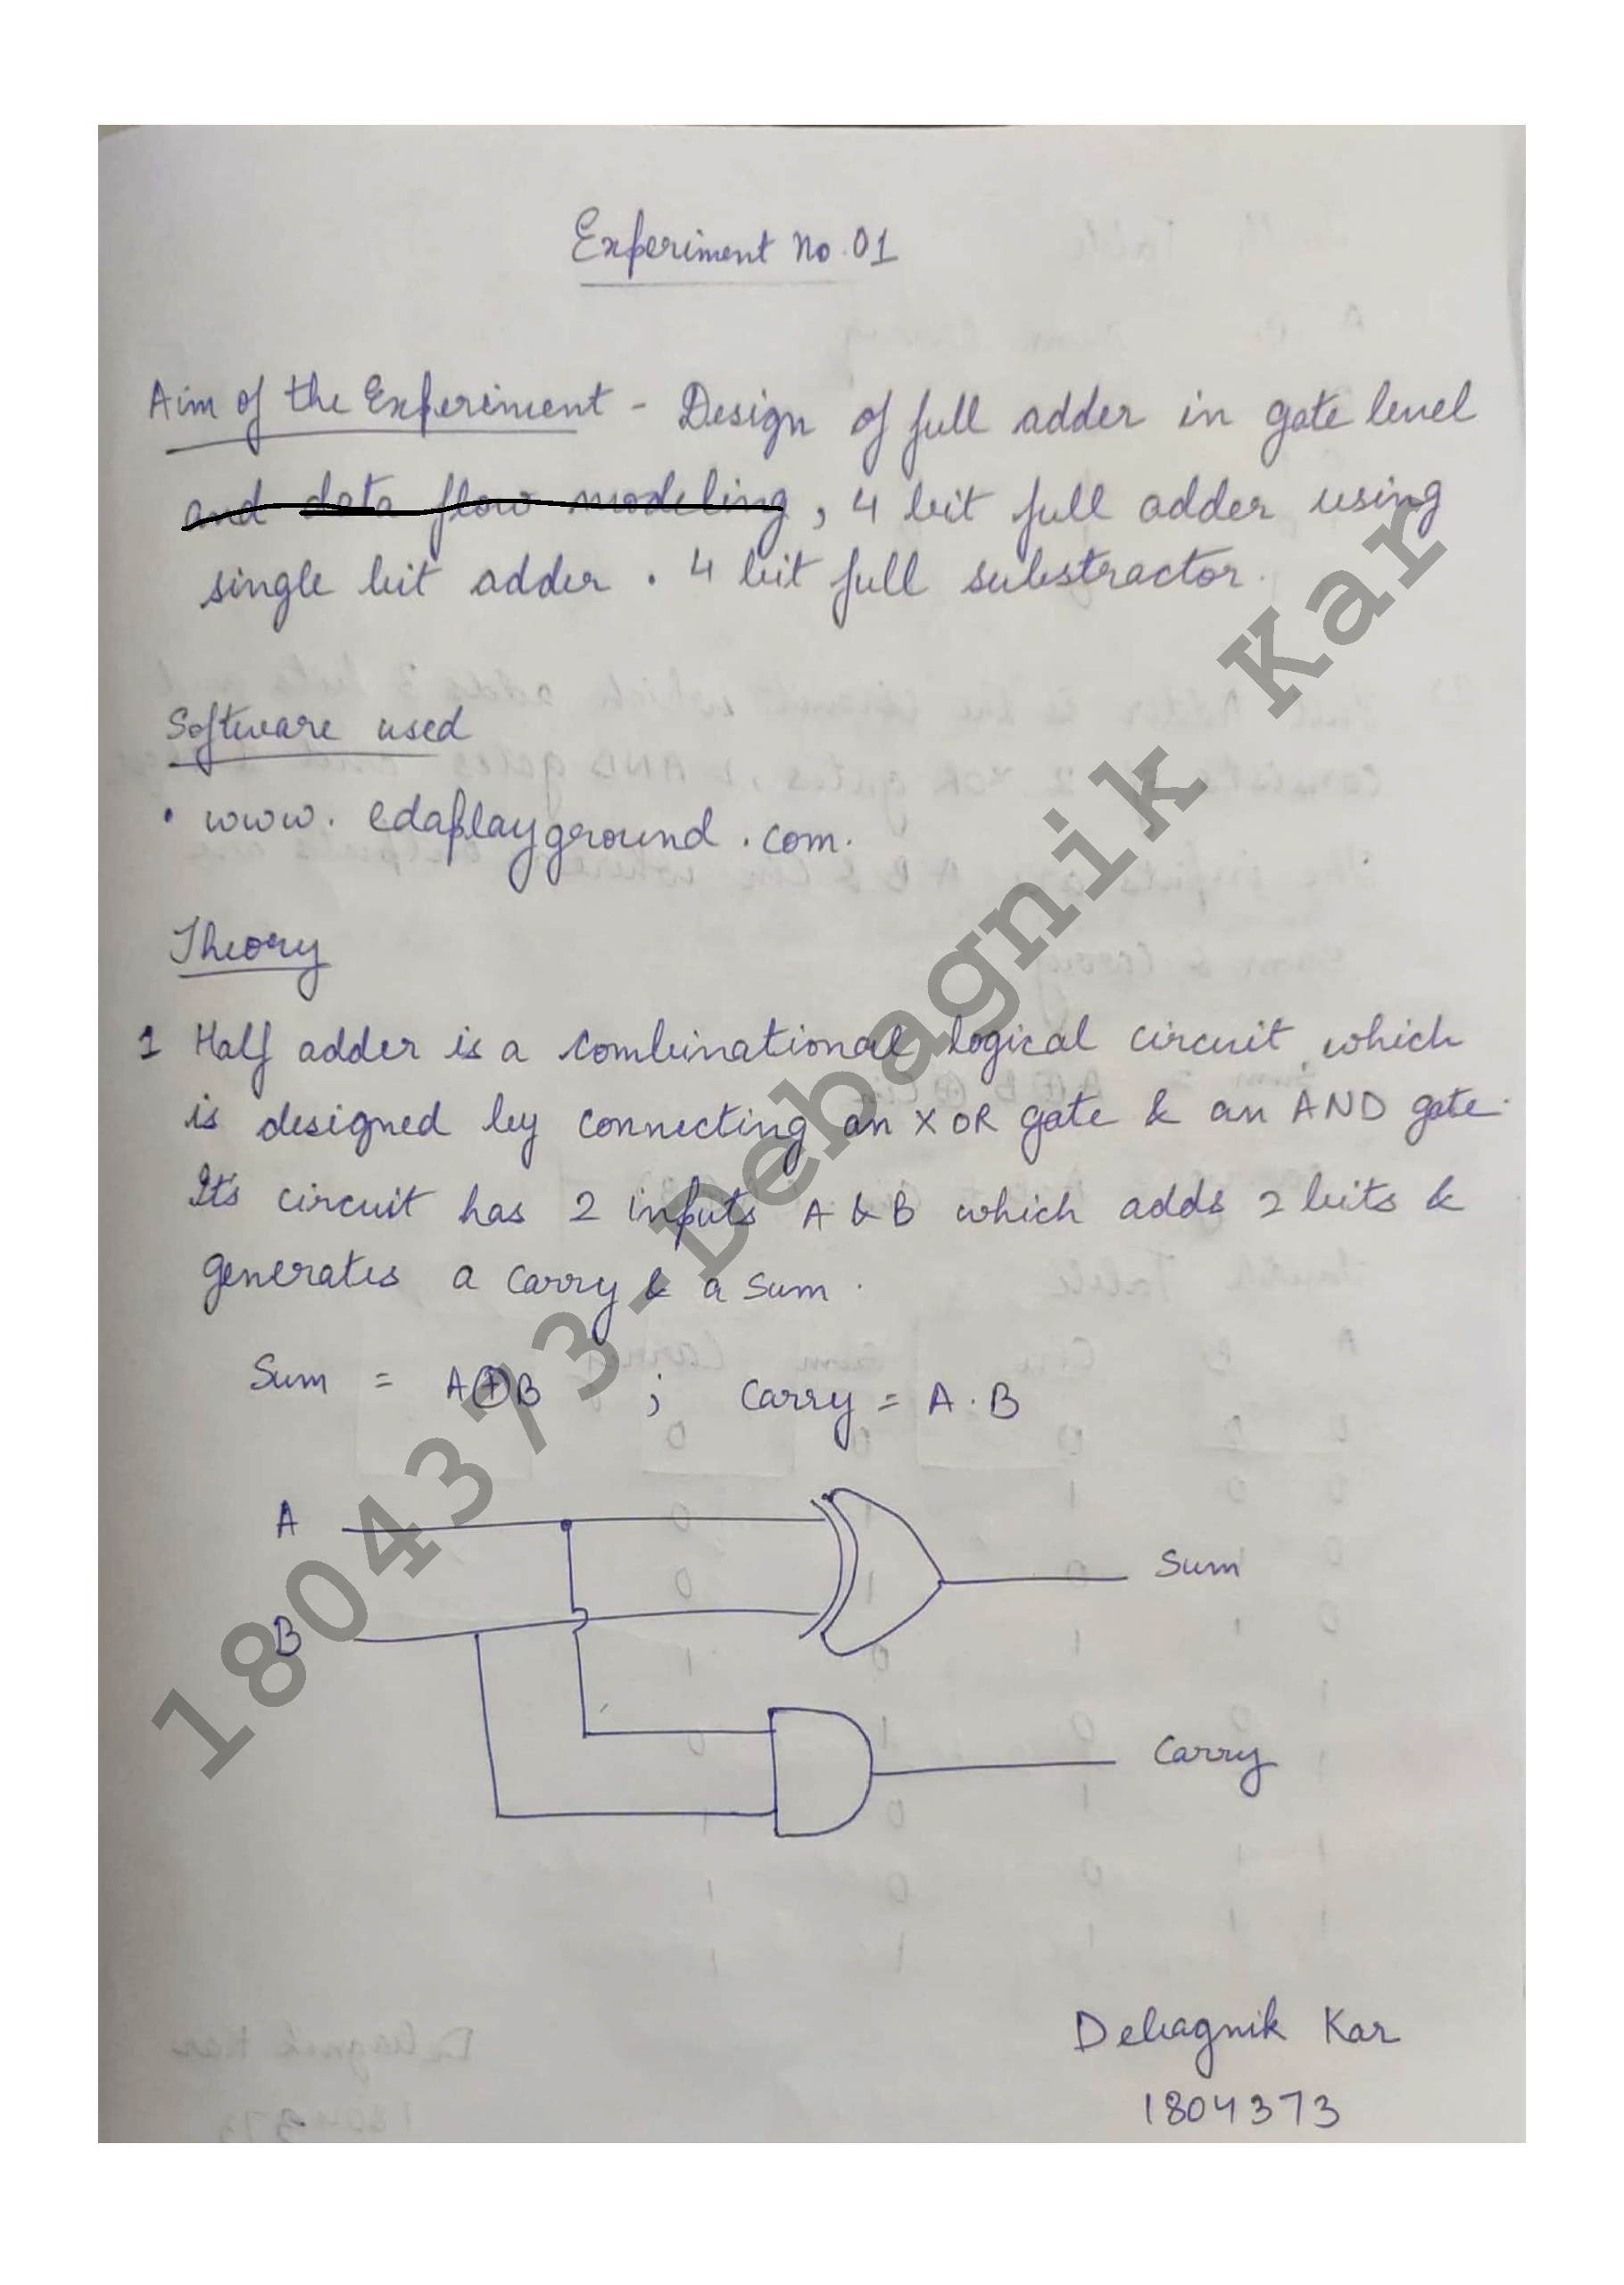 Experiment No. 01
Aim of the Experiment - Design of full adder in gate level
and data flow modeling, 4 bit full adder using
single bit adder. 4 bit full substractor.
Software used
• www. edaplayground .com.
Theory
1 Half adder is a combinational logical circuit which
is designed by connecting an XOR gate & an AND gate.
It's circuit has 2 inputs A & B which adds 2 bits &
generates a carry & a sum.
Sum = A⊕B ; Carry = A·B
A
Sum
B
Carry
Debagnik Kar
1804373
1804373-Debagnik Kar